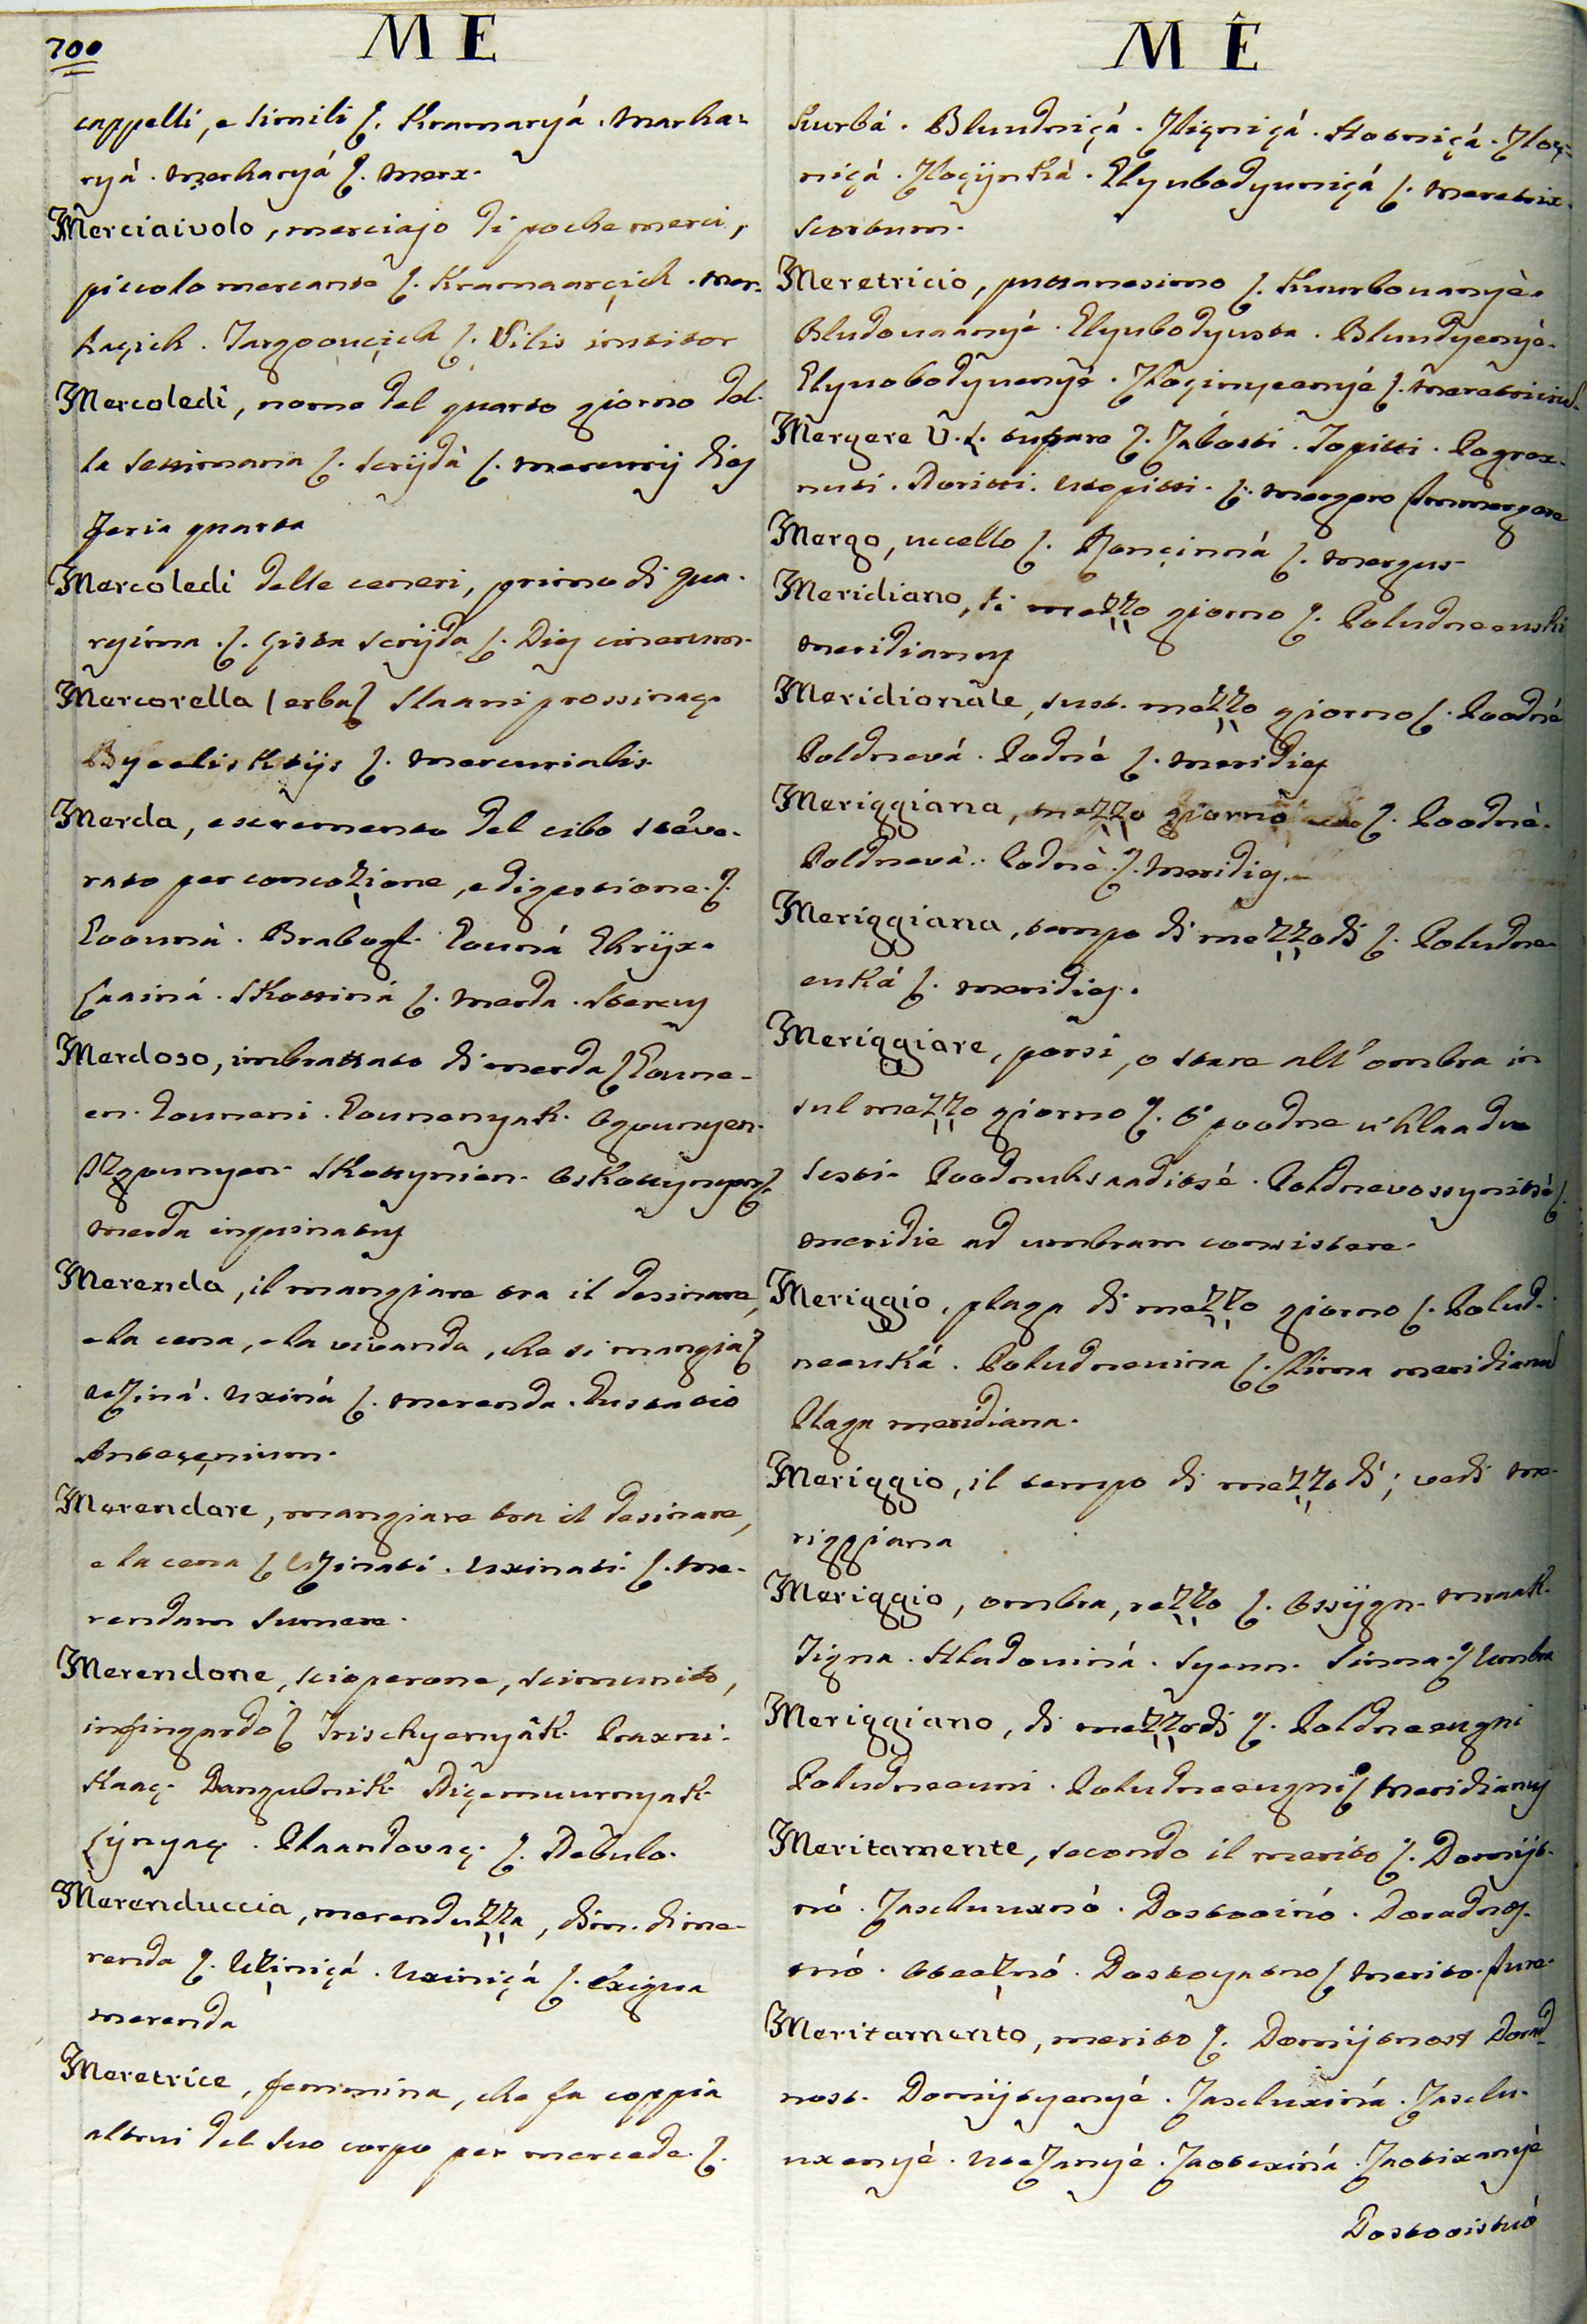 700
M E
cappelli, e simili ſ. Kramaryá. Marka-
ryá. Merkaryá ſ. Merx.
Merciaivolo, merciajo di poche merci,
piccolo mercante ſ. Kramaarçich. Mer-
kaçich. Targoouçich ſ. Vilis institor
Mercoledì, nome del quarto giorno del-
la settimana ſ. Scrijdà ſ. Mercurij dieſ
Feria quarta
Mercoledì delle ceneri, primo di qua-
resima. ſ. çista Scrijda ſ. Dieſ cinerum.
Mercorella (erba) ſ Slaani prossinaç.
Byeelisktijs ſ. Mercurialis.
Merda, escremento del cibo sceve-
rato per concozione, e digestione. ſ.
Govunà. Brabogl. Gouná Ekrijx.
Laainá. Skottiná ſ. Merda. Stercuſ
Merdoso, imbrattato di merda ſ Goune-
en. Gouneni. Gounenyak. Ogounyen.
Uzgounyen. Skottynien. Oskottynyen ſ.
Merda inquinatuſ
Merenda, il mangiare tra il desinare,
e la cena, e la vivanda, che si mangia ſ
Uxiná. Uxiná ſ. Merenda. Gustatio
Anteçenium.
Merendare, mangiare tra il desinare,
e la cena ſ Uzinati. Uxinati. ſ. Me-
rendam sumere.
Merendone, scioperone, scimunito,
infingardo ſ Trischyenyâk. Praxni-
kaaç. Dangubnik. Diçemuurnyak.
Lÿnyaç. Plaandovaç. ſ. Nebulo.
Merenduccia, merenduzza, dim. di me-
renda ſ. Uziniçá. Uxiniçá ſ. Exigua
merenda
Meretrice, femmina, che fa coppia
altrui del suo corpo per mercede. ſ.
M Ê
Kurbá. Bluudniçá. Zligniçá. Hotniçá. Zloç-
niçá. Zloçÿnká. Glyubodyuniçá ſ. Meretrix.
Scortum.
Meretricio, puttanesimo ſ. Kuurbouanyè.
Bludouaanyé. Glyubodyustva. Bluudyenyè.
Glyuobodyuenyé. Zloçinyeenyé ſ. Meretriciũ.
Mergere V. L. tuffare ſ. Zabosti. Topitti. Pogrox-
nuti. Noritti. Utopitti. ſ. Mergere Immergere
Mergo, uccello ſ. Ronçinná ſ. Mergus
Meridiano, di mezzo giorno ſ. Poludneeuski
Meridianuſ
Meridionale, sust. mezzo giorno ſ. Poodné
Poldnevá. Podné ſ. Meridieſ
Meriggiana, mezzo giorno ſ. Poodnè.
Poldnevà. Podnè ſ. Meridieſ.
Meriggiana, tempo di mezzodì ſ. Poludne-
euká ſ. Meridieſ.
Meriggiare, porsi, o stare all' ombra in
sul mezzo giorno ſ. O' poodne u' hlaadu
sesti. Poodnuhsaaditsé. Poldnevossynitsè ſ.
Meridie ad umbram consistere.
Meriggio, plaga di mezzo giorno ſ. Polud-
neeuká. Poludneuina ſ. Clima meridianũ
Plaga meridiana.
Meriggio, il tempo di mezzodì; vedi Me-
riggiana
Meriggio, ombra, rezzo ſ. Ossijgn. Mraak.
Tigna. Hladoviná. Syenn. Sinna ſ Umbra
Meriggiano, di mezzodì ſ. Poldneeugni
Poludneeuni. Poludneeugni ſ Meridianuſ
Meritamente, secondo il merito ſ. Domijt-
nó. Zasluuxnó. Dostooinó. Doradnoſ-
tnó. Oteeznó. Dostoyatno ſ Merito. Jure.
Meritamento, merito ſ. Domijtnost Dorad-
nost. Domijtyenyé. Zasluxiná. Zaslu-
uxenyé. Utezanyé. Zaotexiná. Zaotixanyè
Dostooistuó